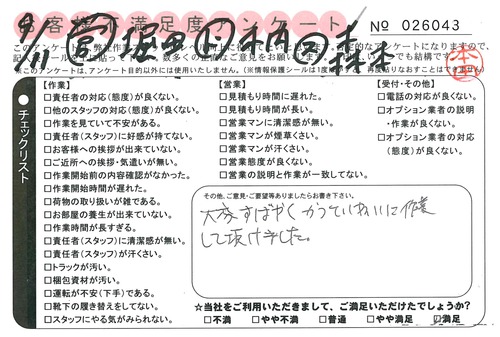 お客様ご満足度アンケート
No 026043
9/11
チェックリスト
【作業】
□責任者の対応(態度)が良くない。
□他のスタッフの対応(態度)が良くない。
□作業を見ていて不安がある。
□責任者(スタッフ)に好感が持てない。
□お客様への挨拶が出来ていない。
□ご近所への挨拶・気遣いが無い。
□作業開始前の内容確認がなかった。
□作業開始時間が遅れた。
□荷物の取り扱いが雑である。
□お部屋の養生が出来ていない。
□作業時間が長すぎる。
□責任者(スタッフ)に清潔感が無い。
□責任者(スタッフ)が汗くさい。
□トラックが汚い。
□梱包資材が汚い。
□運転が不安(下手)である。
□靴下の履き替えをしてない。
□スタッフにやる気がみられない。
【営業】
□見積もり時間に遅れた。
□見積もり時間が長い。
□営業マンに清潔感が無い。
□営業マンが煙草くさい。
□営業マンが汗くさい。
□営業態度が良くない。
□営業の説明と作業が一致してない。
【受付・その他】
□電話の対応が良くない。
□オプション業者の説明
・作業が良くない。
□オプション業者の対応
(態度)が良くない。
その他、ご意見・ご要望等ありましたらお書き下さい。
大変すばやくかつていねいに作業
して頂けました。
☆当社をご利用いただきまして、ご満足いただけたでしょうか?
□不満 □やや不満 □普通 □やや満足 ☑満足